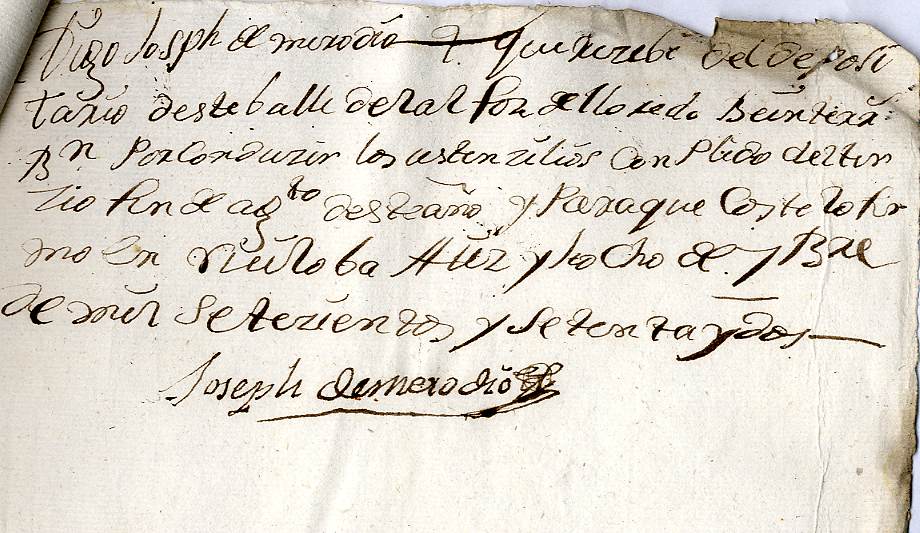 Digo Joseph de merodio que Rezebi del deposi
tario desteballe delal fon de lloredo Beinte Rs
Bn Por Conduzir los ustenzilios Conplido del ter
zio fin de agto desteaño y Paraque Coste lo fir
mo en diez y ho cho de
de mil Setezientos y Setenta y dos
Joseph demerodio